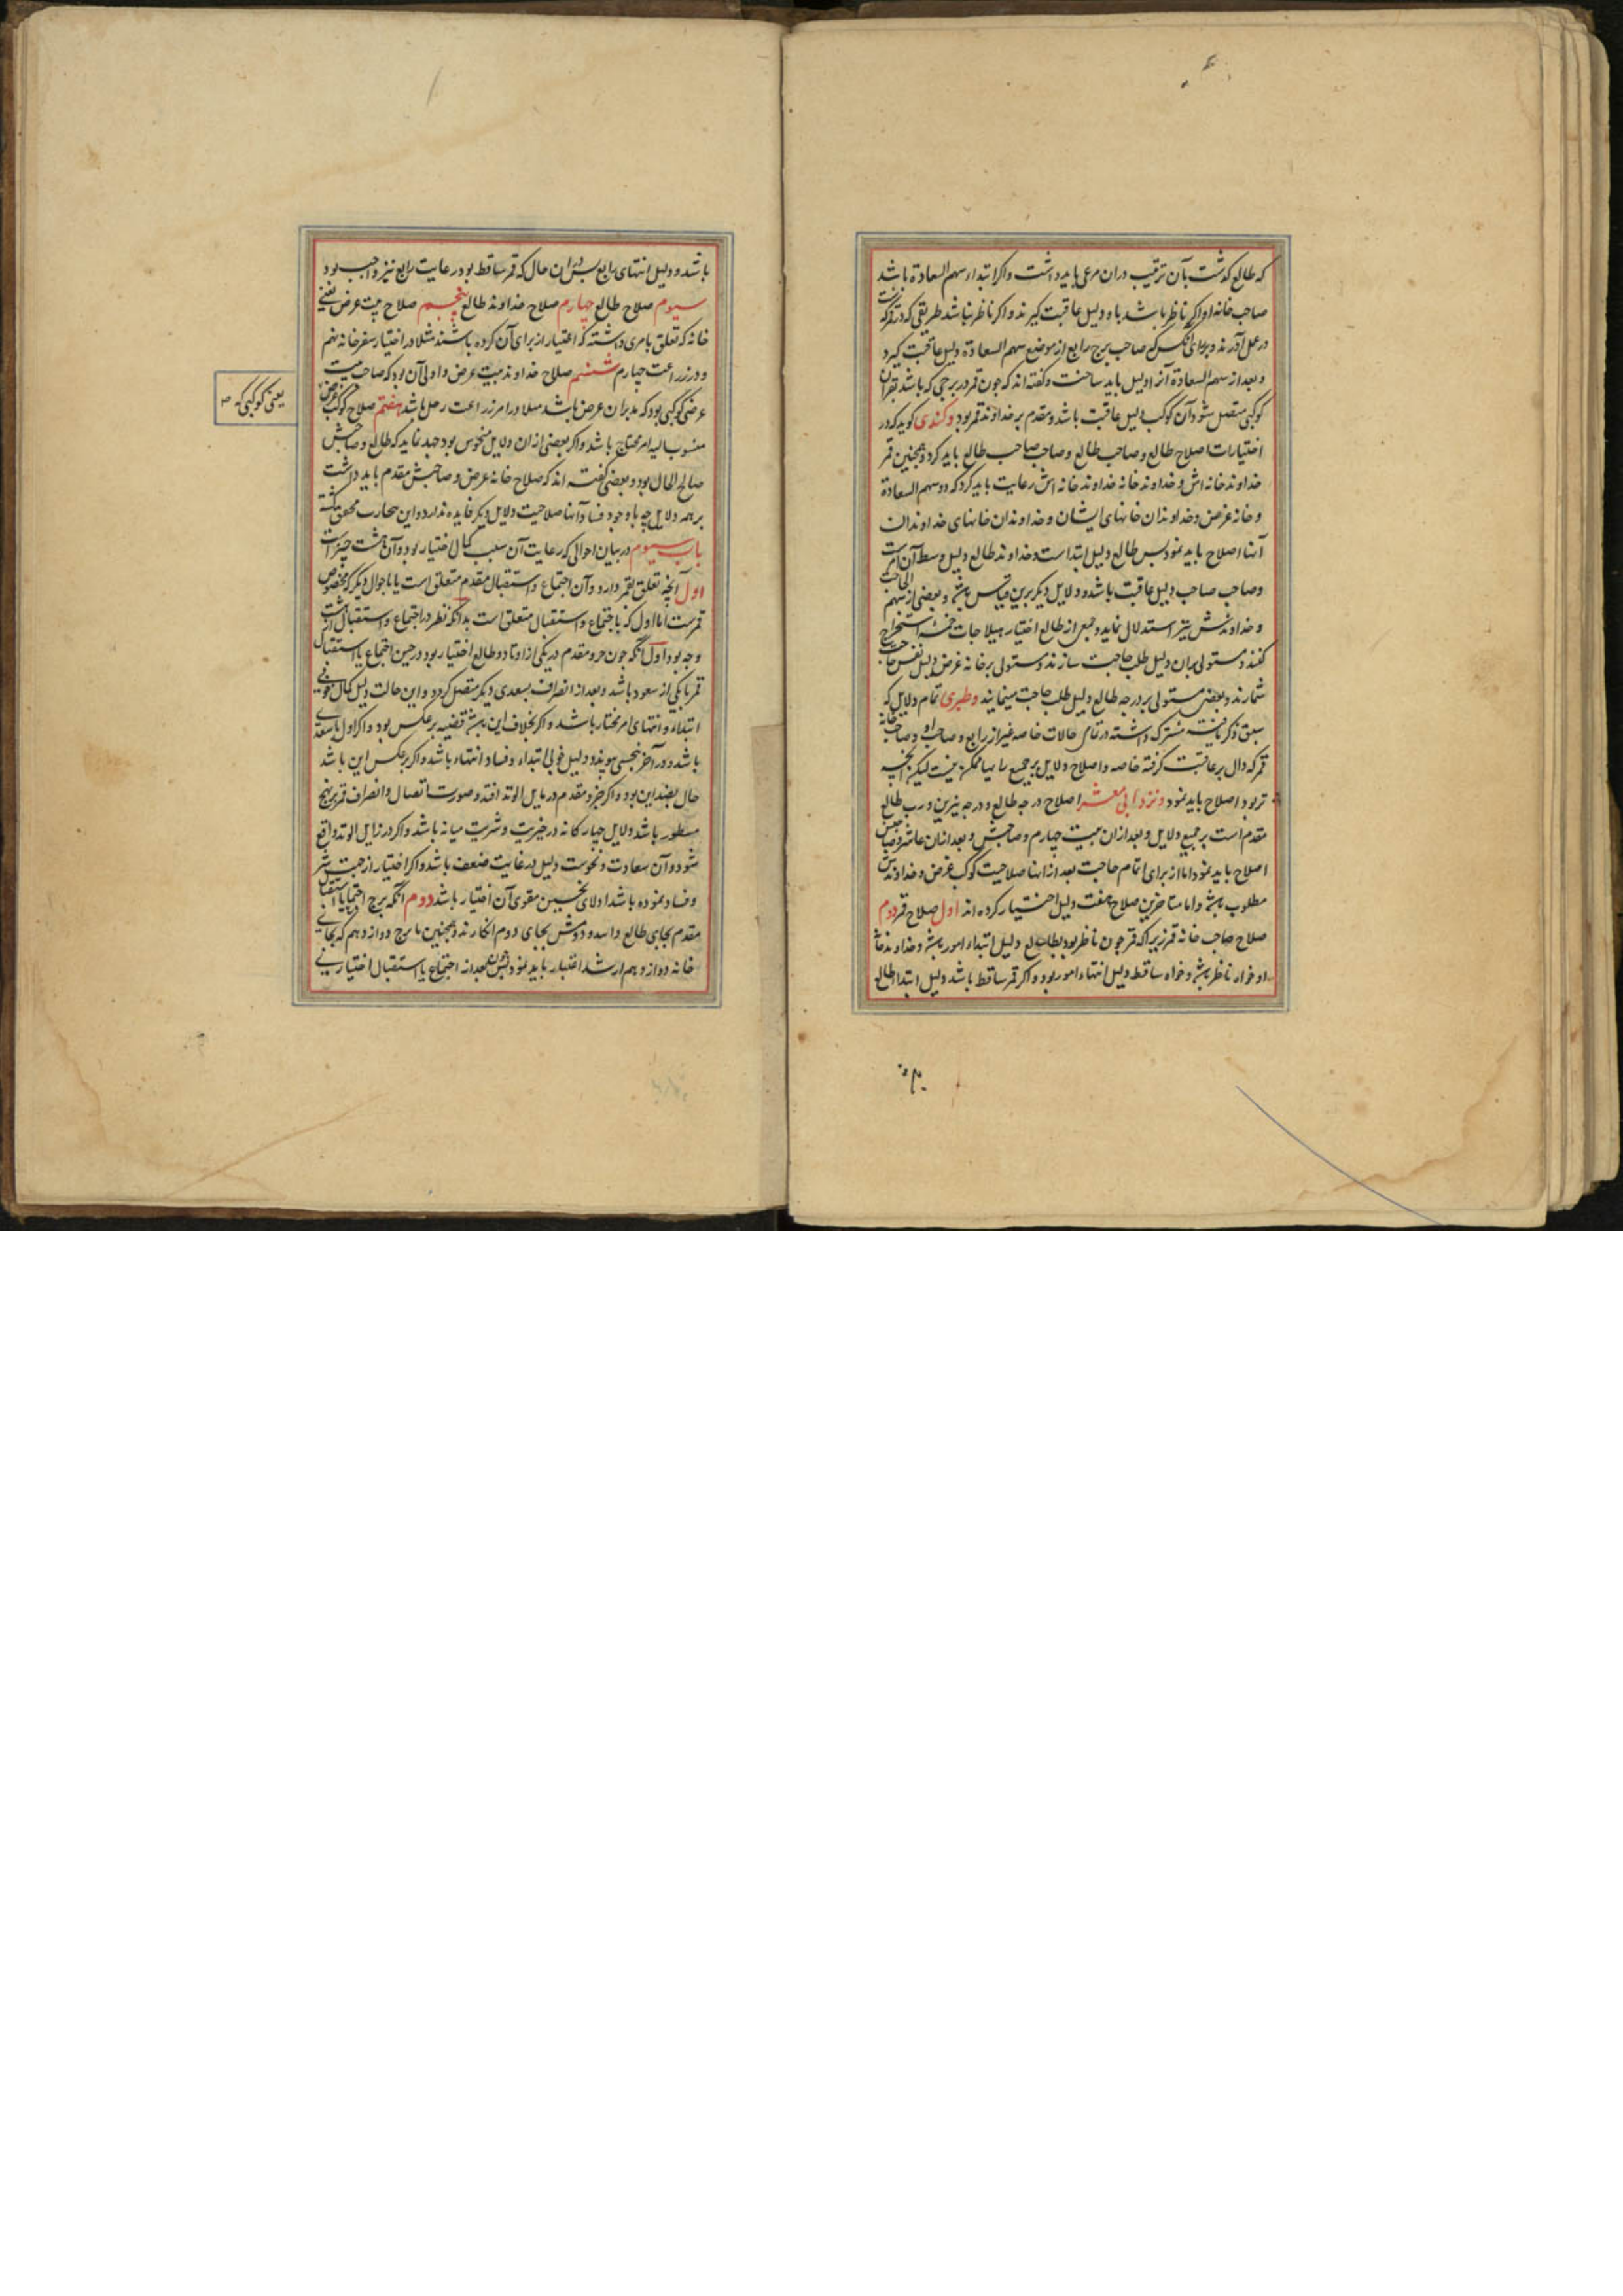 که طالع کذشت بآن ترتیب دران مرعی باید داشت واکر ابتداء سهم السعادة باشد
صاحب خانه او اکر ناظر باشد باو دلیل عاقبت کیرند و اکر ناظر نباشد طریقی که در قمر کذشت
در عمل آورند و برای آنکس که صاحب برج رابع از موضع سهم السعادة دلیل عاقبت کیرد
و بعد از سهم السعادة آنرا دلیل باید ساخت و کفته اند که چون قمر در برجی که باشد بقران
کوکبی متصل شود آن کوکب دلیل عاقبت باشد و مقدم بر خداوند قمر بود وکندی کوید که در
اختیارات اصلاح طالع و صاحب طالع و صاحب صاحب طالع باید کرد و همچنین قمر
خداوند خانه اش و خداوند خانه خداوند خانه اش رعایت باید کرد که دو سهم السعادة
و خانه غرض و خداوندان خانهای ایشان و خداوندان خانهای خداوندان
آنها اصلاح باید نمود پس طالع دلیل ابتداست و خداوند طالع دلیل وسط آن امرست
وصاحب صاحب دلیل عاقبت باشد و دلایل دیکر برین قیاس باشد و بعضی از سهم الحاجت
و خداوندش نیز استدلال نماید و جمعی از طالع اختیار هیلاجات خمسه استخراج
کنند و مستولی بران دلیل طلب حاجت سازند و مستولی بر خانه غرض دلیل نفس حاجت
شمارند و بعضی مستولی بر درجه طالع دلیل طلب حاجت مینمایند وطبری تمام دلایل که
سبق ذکر یافت مشترک داشته در تمامی حالات خاصه غیر از رابع و صاحب او و صاحب خانه
قمر که دال بر عاقبت کرفته خاصه و اصلاح دلایل بر جمیع را سیما ممکن نیست لیکن آنچه
تر بود اصلاح باید نمود ونزد ابی معشر اصلاح درجه طالع و درجه نیرین و رب طالع
مقدم است بر جمیع دلایل و بعد ازان بیت چهارم و صاحبش و بعد ازان عاشر و صاحبش
اصلاح باید نمود اما از برای اتمام حاجت بعد از انها صلاحیت کوکب غرض و خداوندش
مطلوب باشد و اما متاخرین صلاح هفت دلیل اختیار کرده اند اول صلاح قمر دوم
صلاح صاحب خانه قمر زیرا که قمر چون ناظر بود بطالع دلیل ابتداء امور باشد و خداوند خانه
او خواه ناظر باشد و خواه ساقط دلیل انتهاء امور بود و اکر قمر ساقط باشد دلیل ابتدا طالع
باشد و دلیل انتهای رابع پس دران حال که قمر ساقط بود رعایت رابع نیز واجب بود
سیوم صلاح طالع چهارم صلاح خداوند طالع پنجم صلاح بیت غرض یعنی
خانه که تعلق بامری داشته که اختیار از برای آن کرده باشند مثلا در اختیار سفر خانه نهم
و در زراعت چهارم ششم صلاح خداوند بیت غرض و اولی آن بود که صاحب بیت
غرضی کوکبی بود که مدبران غرض باشد مثلا در امر زراعت زحل باشد هفتم صلاح کوکب غرض
یعنی کوکبی که
منسوب الیه امر محتاج باشد و اکر بعضی ازان دلایل منحوس بود جهد نماید که طالع و صاحبش
صالح الحال بود و بعضی کفته اند که صلاح خانه غرض و صاحبش مقدم باید داشت
بر همه دلایل چه با وجود فساد آنها صلاحیت دلایل دیکر فایده ندارد و این تجارب محقق کشته
باب سیوم در بیان احوالی که رعایت آن سبب کمال اختیار بود و آن هشت چیز است
اول آنچه تعلق بقمر دارد و آن اجتماع و استقبال مقدم متعلق است یا باحوال دیکر که مخصوص
قمرست اما اول که باجتماع و استقبال متعلق است بدانکه نظر در اجتماع و استقبال از
وجه بود اول آنکه چون جزو مقدم در یکی از اوتاد و طالع اختیار بود و در حین اجتماع یا استقبال
قمر با یکی از سعود باشد و بعد از انصراف بسعدی دیکر متصل کردد و این حالت دلیل کمال خوبی
ابتداء و انتهای امر مختار باشد و اکر بخلاف این باشد قضیه بر عکس بود و اکر اول با سعدی
باشد و در آخر بنحسی پیوندد دلیل خوبی ابتداء و فساد انتهاء باشد و اکر بر عکس این باشد
حال بضد این بود و اکر جزو مقدم در مایل الوتد افتد و صورت اتصال و انصراف قمر بر نهج
مسطور باشد دلایل چهار کانه در خیریت و شریت میانه باشد و اکر در زایل الوتد واقع
شود آن سعادت و نحوست دلیل در غایت ضعف باشد و اکر اختیار از جهت شر
و فساد نموده باشد اولای نحسین مقوی آن اختیار باشد دوم آنکه برج اجتماع یا استقبال
مقدم بجای طالع دانند و دومش بجای دوم انکارند و همچنین تا برج دوازدهم که بجای
خانه دوازدهم باشد اعتبار باید نمود پس بعد از اجتماع یا استقبال اختیاری